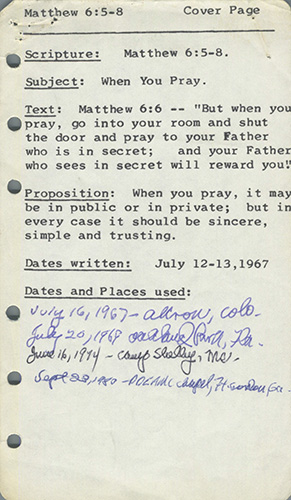 Matthew 6:5-8 Cover Page
Scripture: Matthew 6:5-8.
Subject: When You Pray.
Text: Matthew 6:6 -- "But when you
pray, go into your room and shut
the door and pray to your Father
who is in secret; and your Father
who sees in secret will reward you"
Proposition: When you pray, it may
be in public or in private; but in
every case it should be sincere,
simple and trusting.
Dates written: July 12-13,1967
Dates and Places used:
July 16, 1967 - Akron, Colo.
July 20, 1969 Oakland Park, Fla.
June 16, 1974 - Camp Shelby, Ms.
Sept 28, 1980 - Chapel, Ft. Gordon Ga.